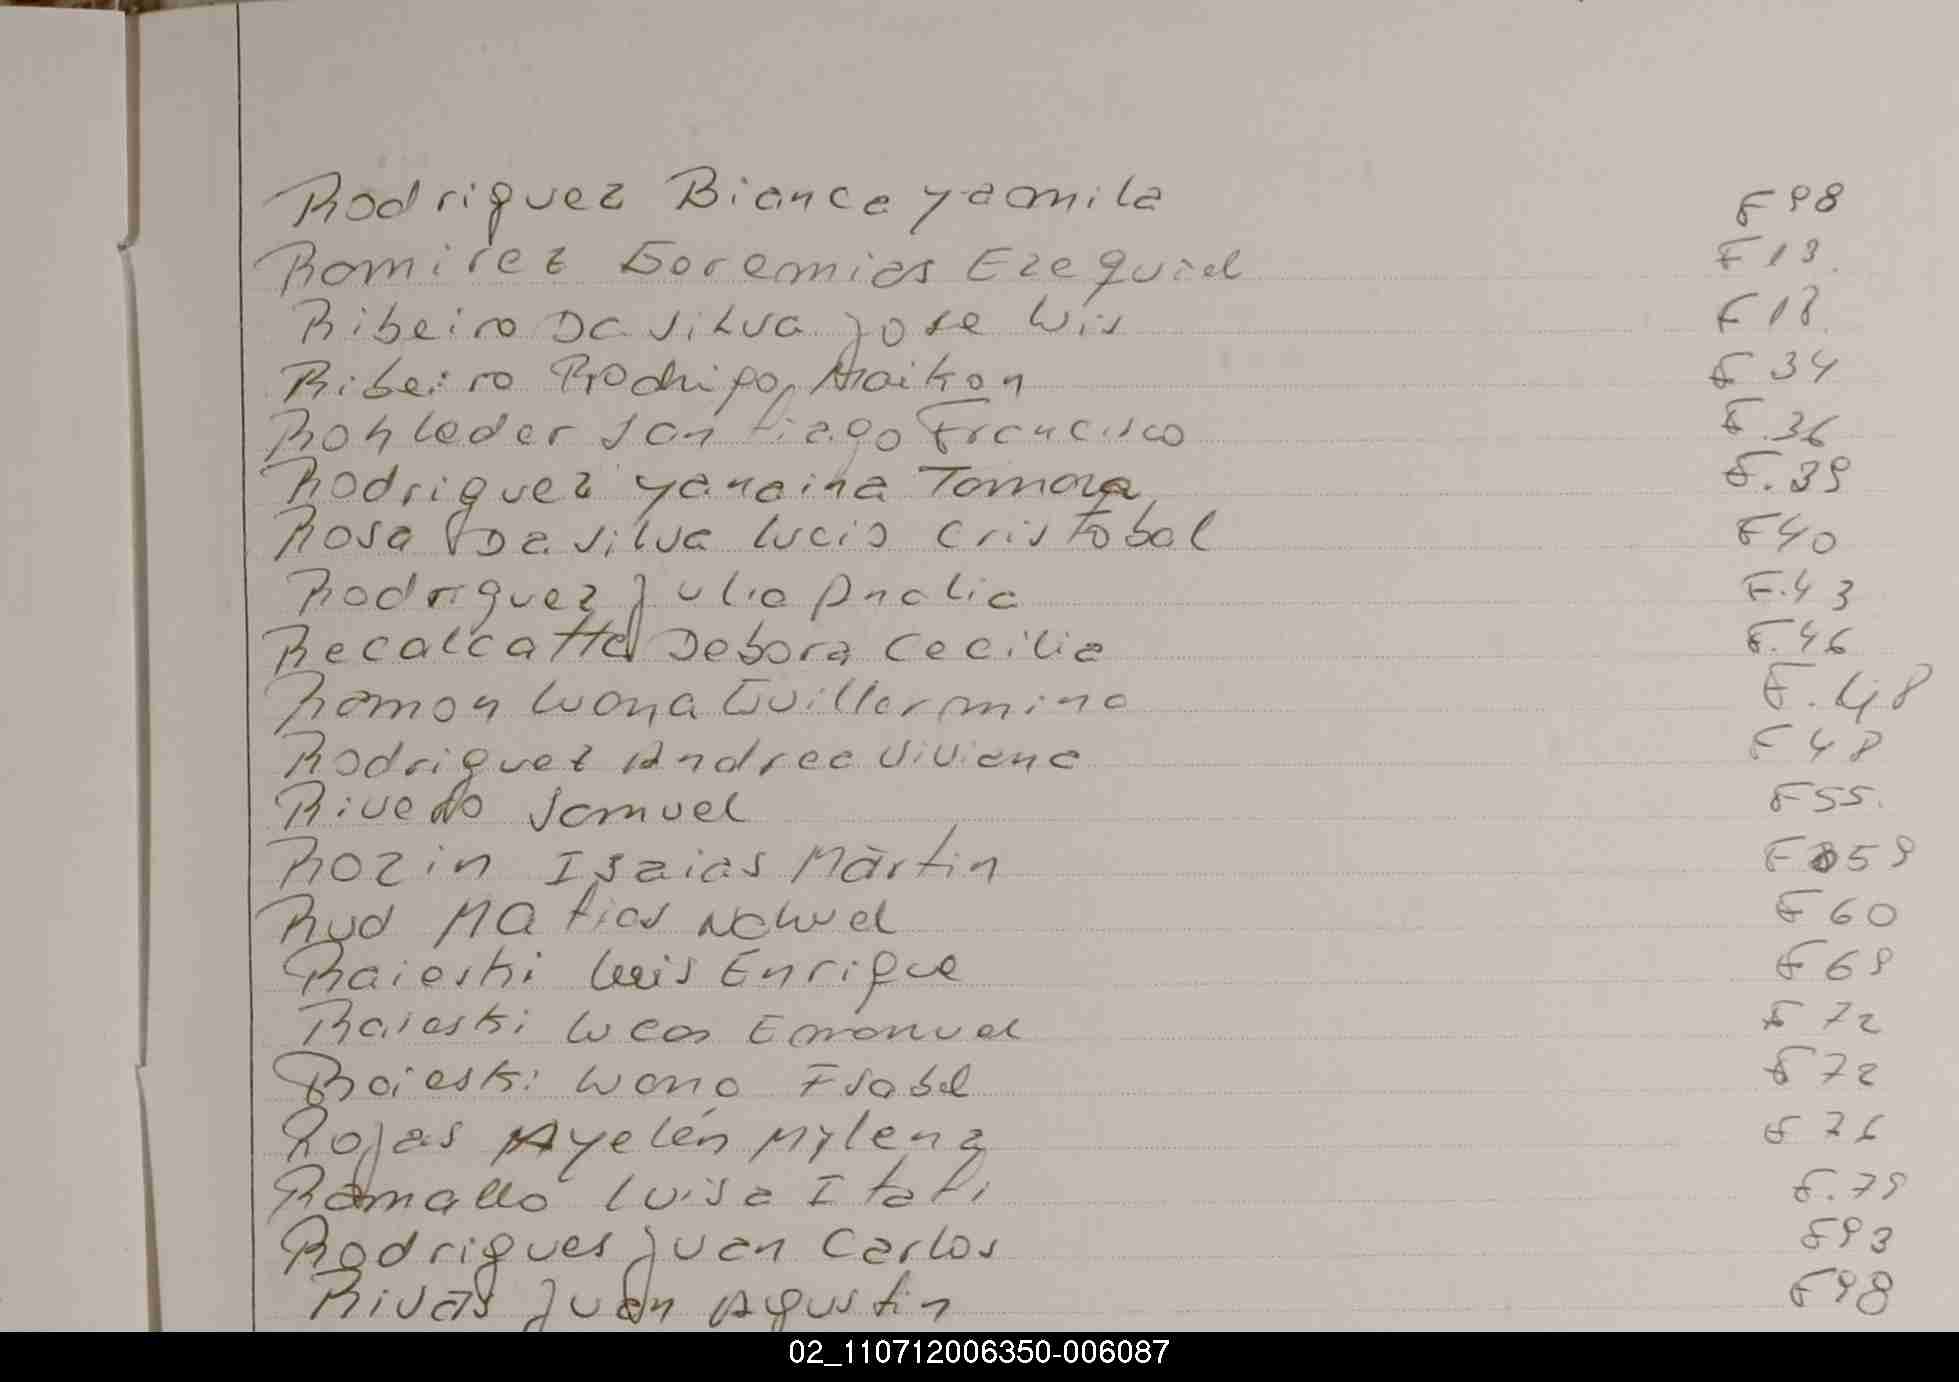 Rodriguez Bianca yamila F98
Ramirez Geremias Ezequiel F13.
Ribeiro Da silva Jose Luis F18.
Ribeiro Rodrigo Maikon F34
Rohleder Santiago Francisco F.36
Rodriguez yanaina Tamara F.39
Rosa Da silva Lucio Cristobal F40
Rodriguez Julia Analia F.43
Recalcatte Debora Cecilia F.46
Ramon Luana Guillermina F.48
Rodriguez Andrea Viviana F48
Rivero Samuel F55.
Rozin Isaias Martin F59
Rud Matias Nahuel F60
Raieski Luis Enrique F69
Raieski Lucas Emanuel F72
Raieski Luana Isabel F72
Rojas Ayelén Mylena F76
Ramallo Luisa Itati F.79
Rodrigues Juan Carlos F93
Rivas Juan Agustin F98
02_110712006350-006087